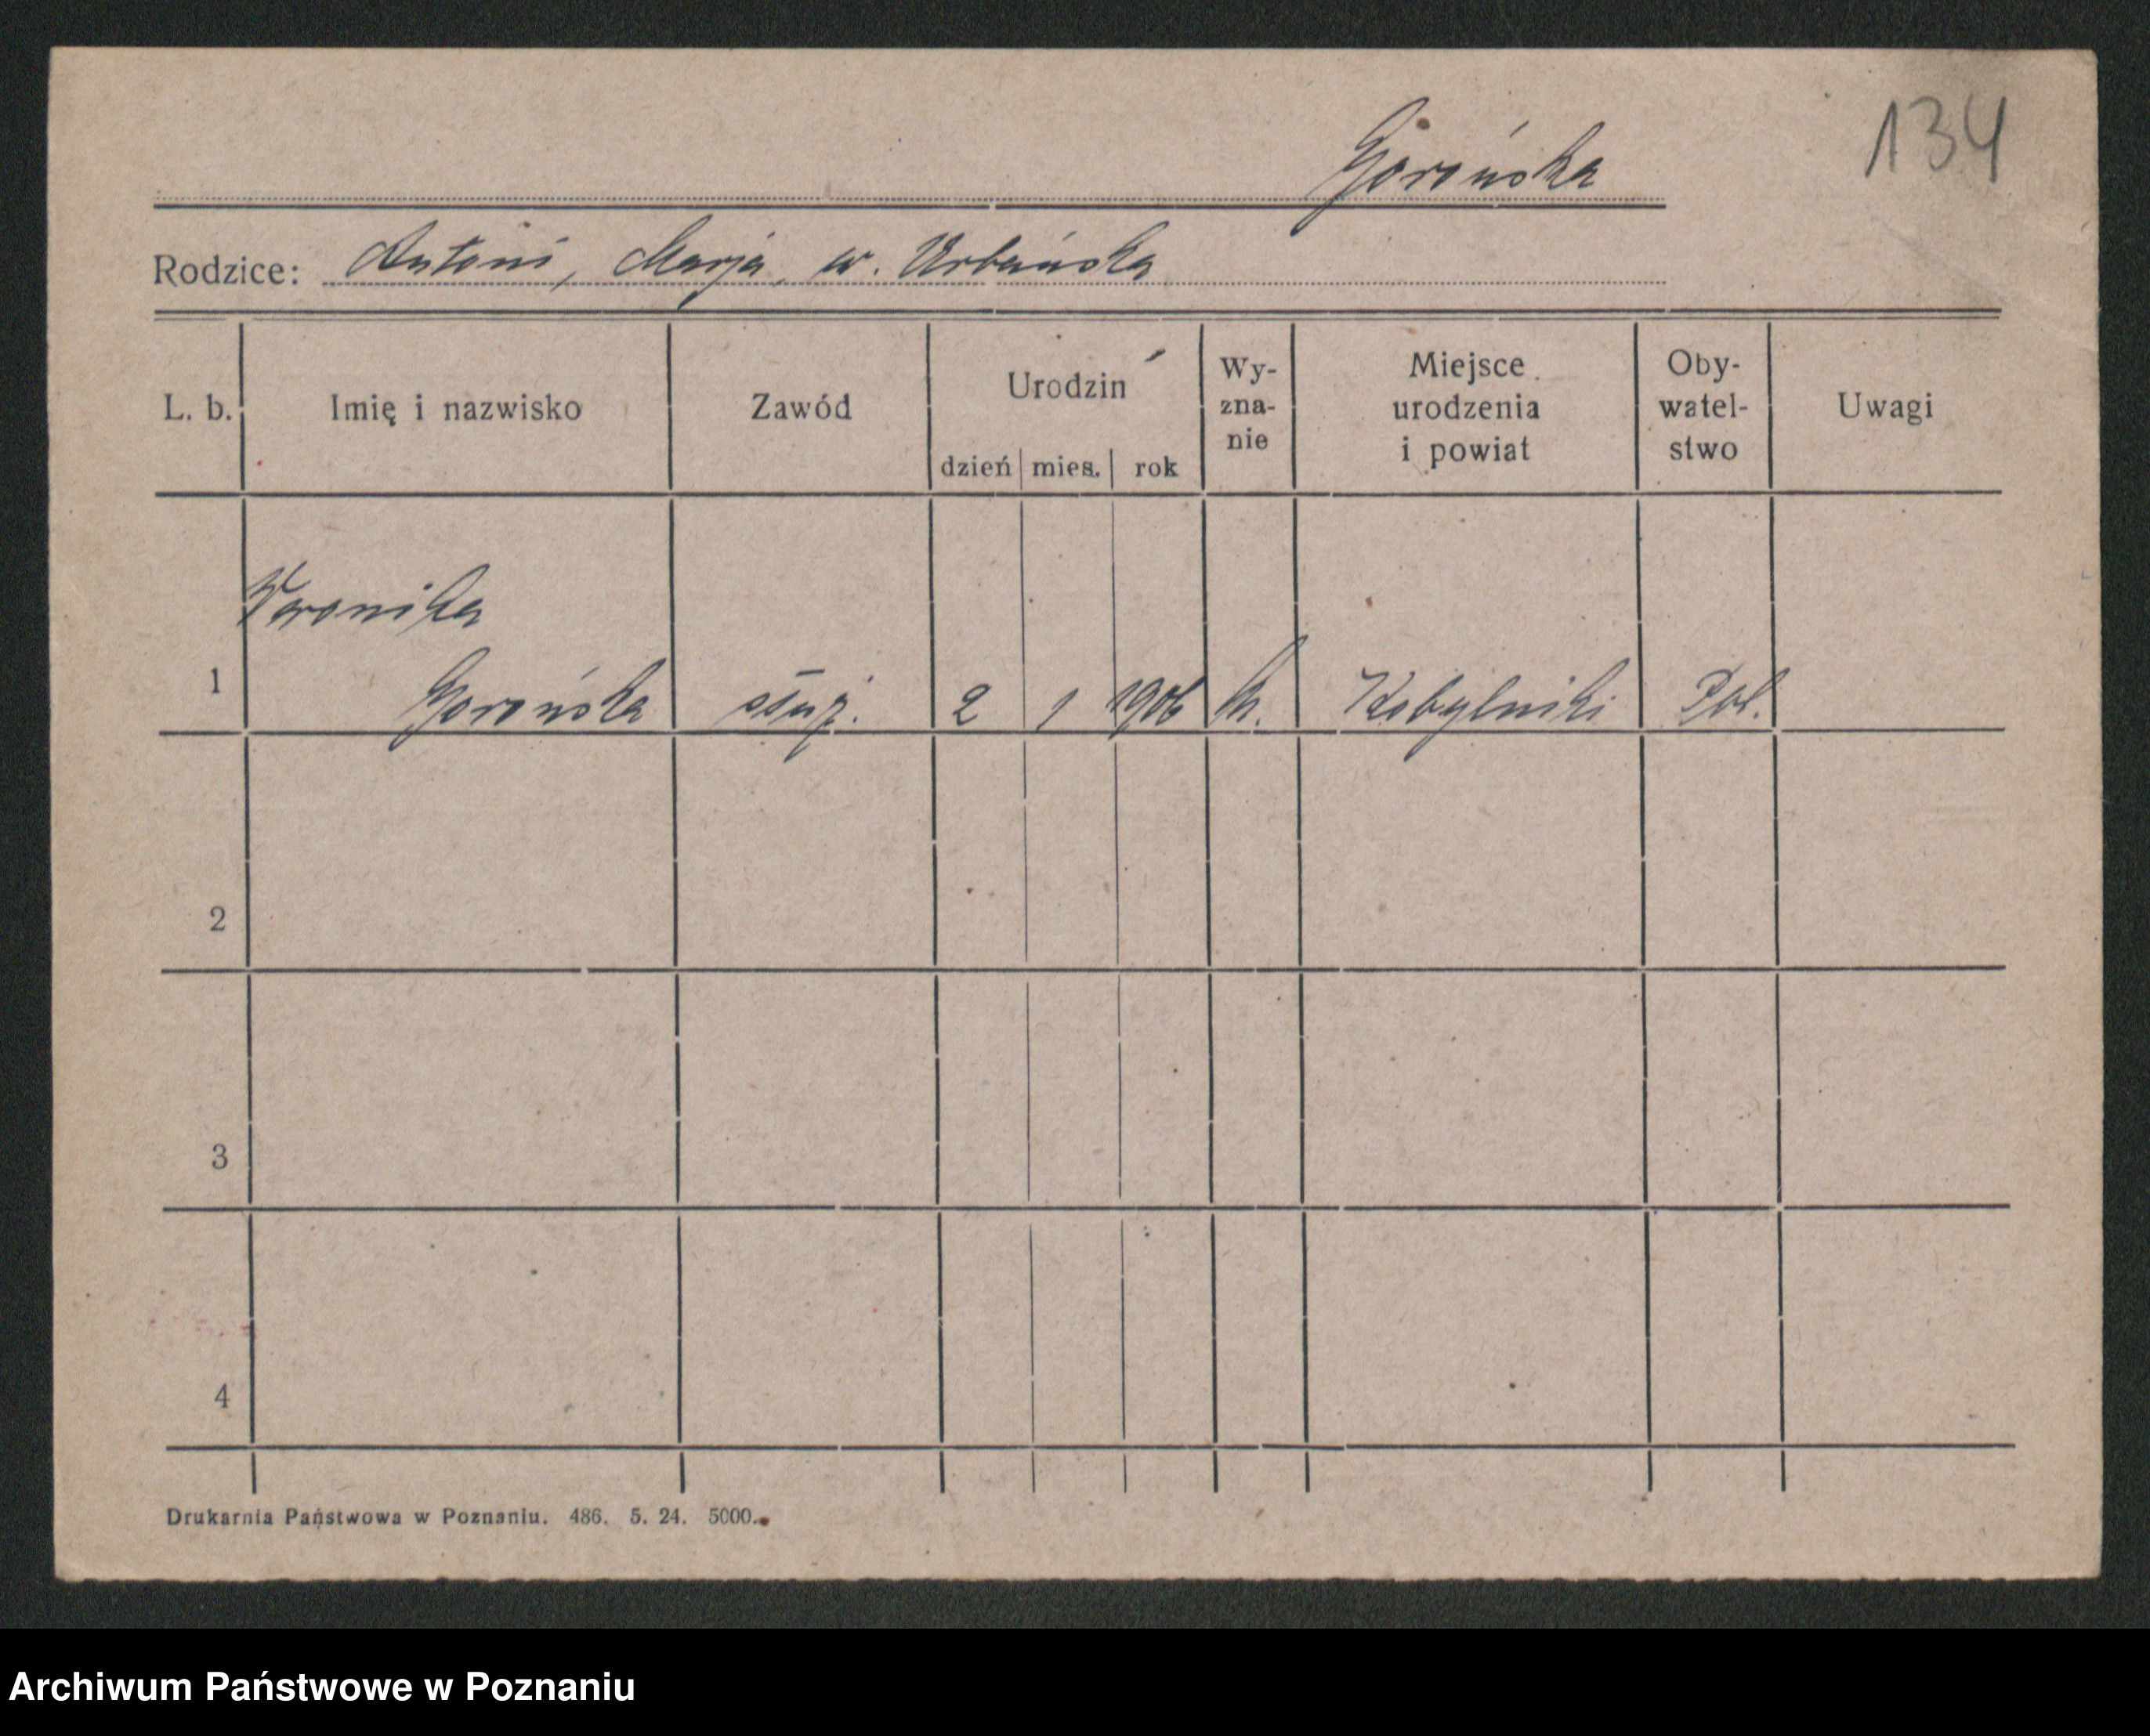 134
Gorońska
Rodzice: Antoni, Marja, w. Urbańska
L. b. Imię i nazwisko Zawód Urodzin Wy-zna-nie Miejsce urodzenia i powiat Oby-watel-stwo Uwagi
dzień mies. rok
Weronika
1 Gorońska służ. 2 1 1906 k. Kobylniki Pol.
2
3
4
Drukarnia Państwowa w Poznaniu. 486. 5. 24. 5000.
Archiwum Państwowe w Poznaniu